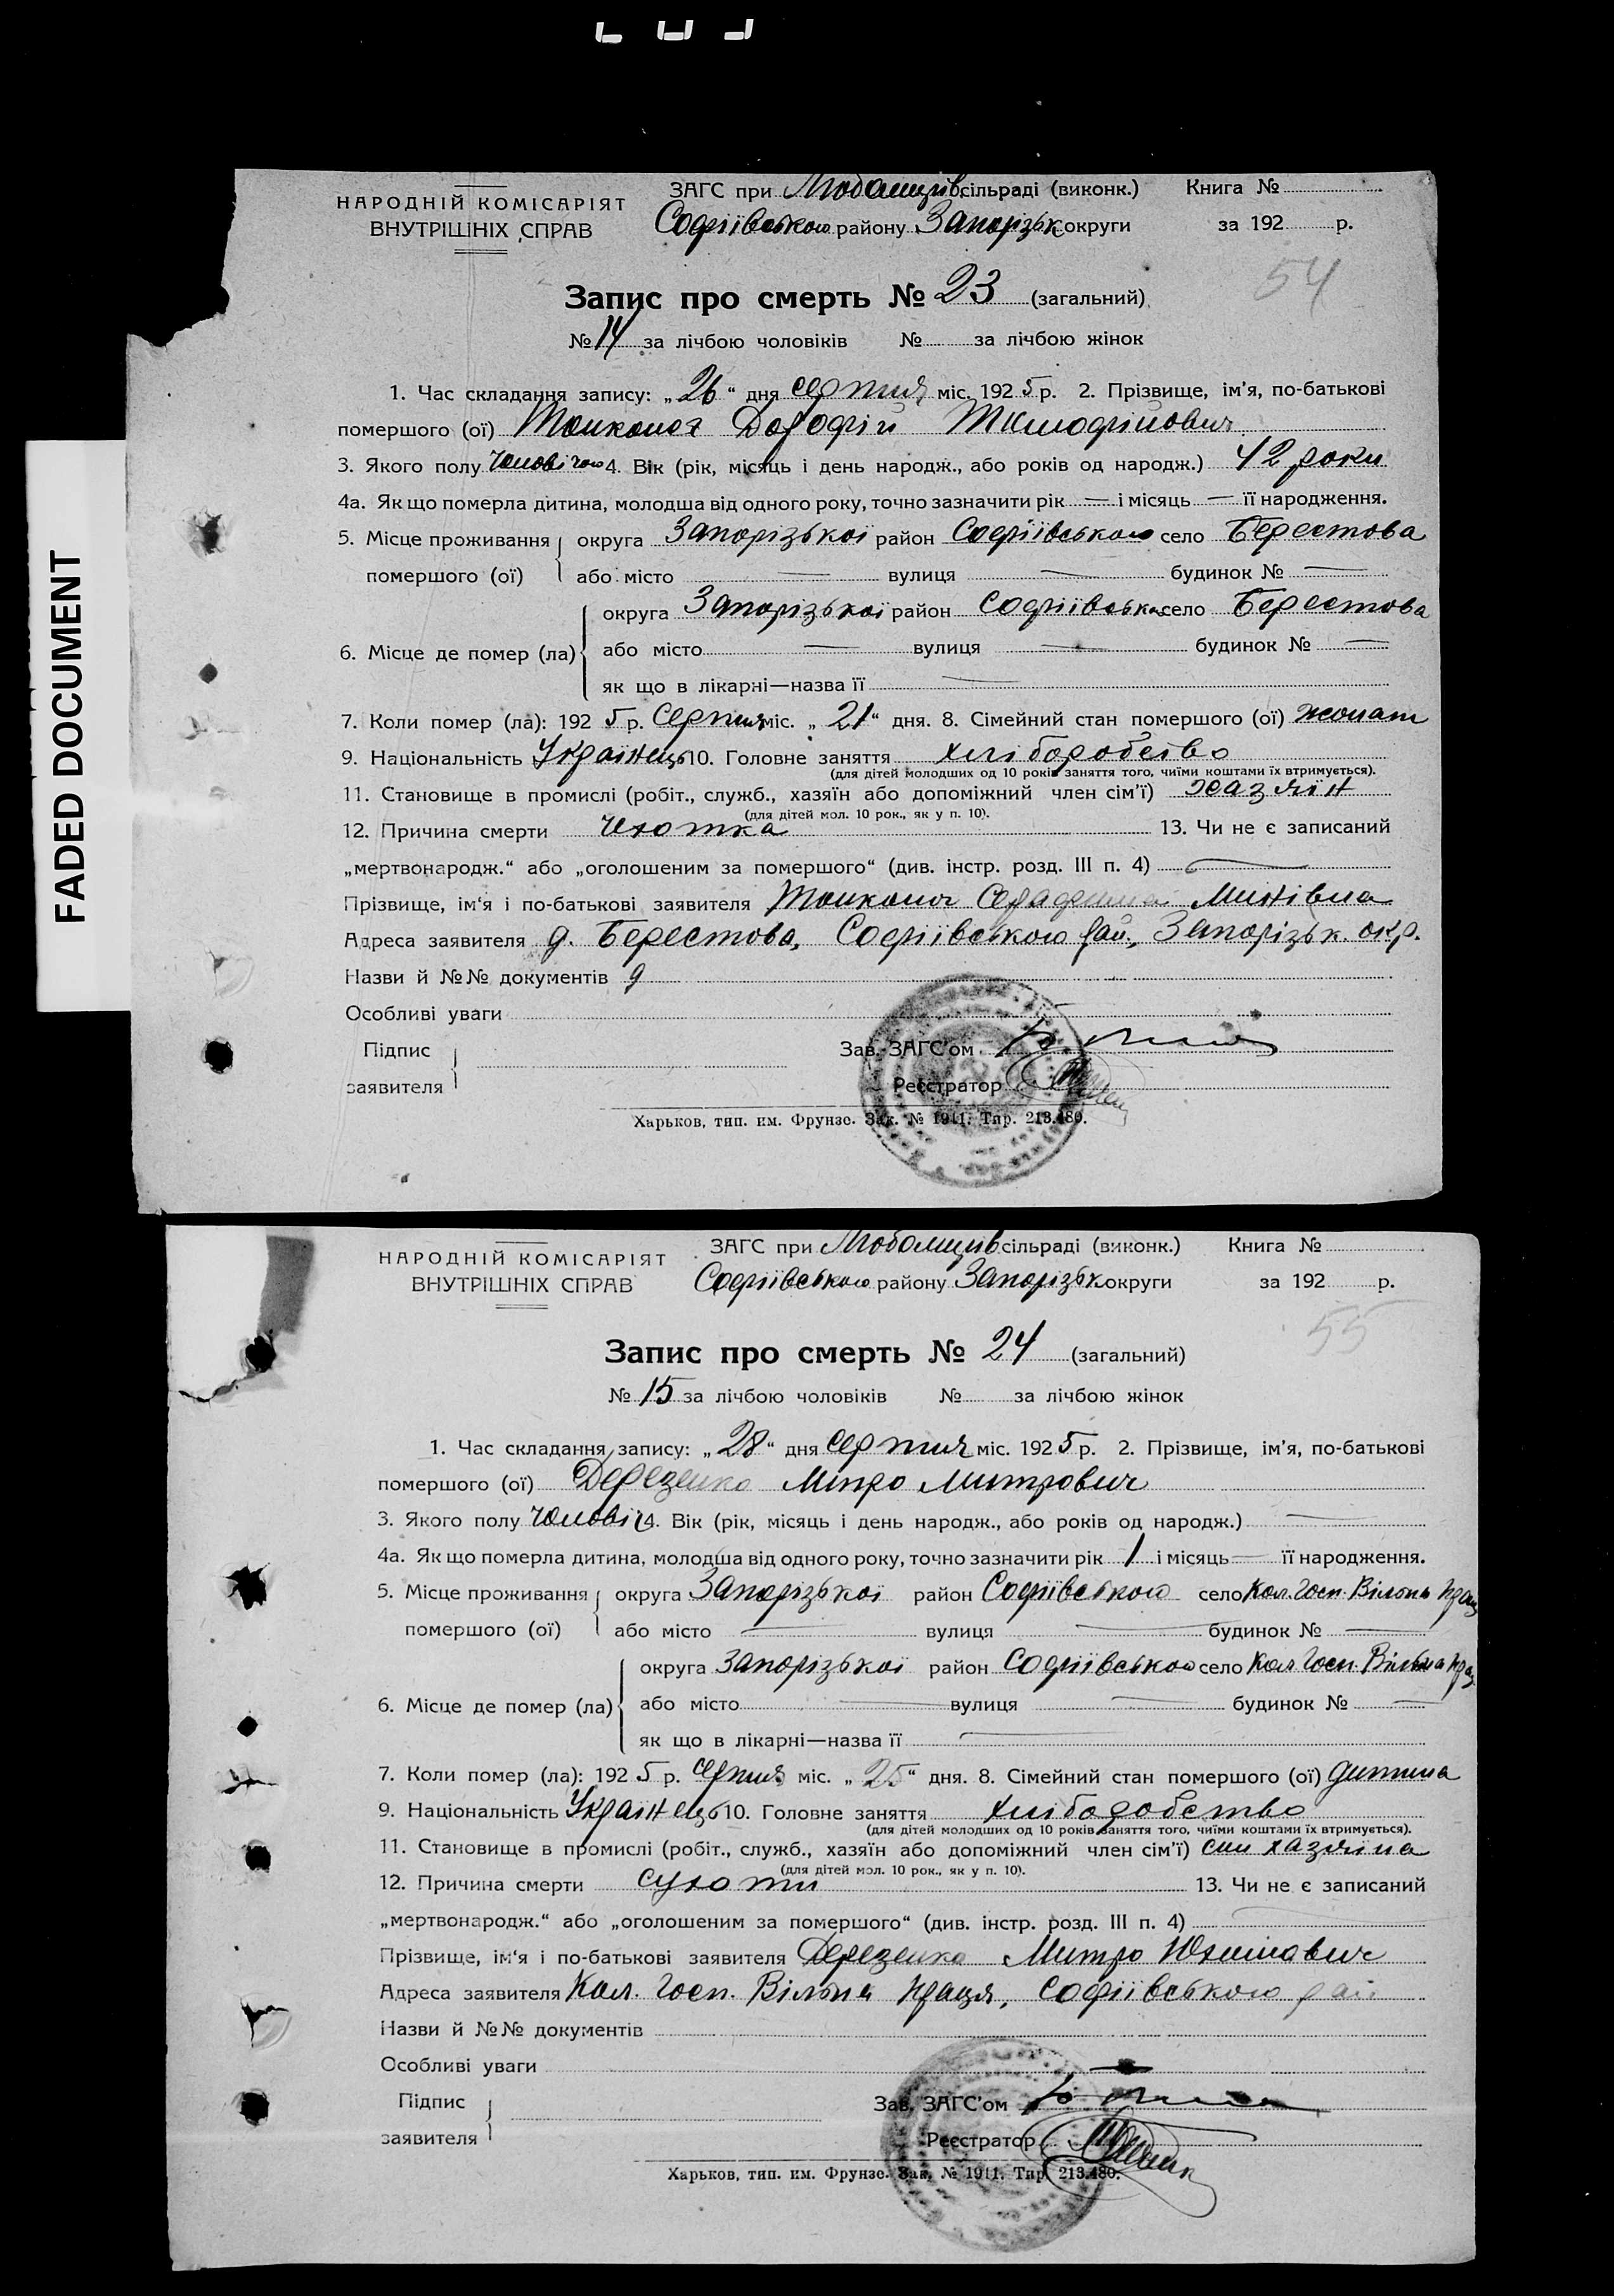 FADED DOCUMENT
НАРОДНІЙ КОМІСАРІЯТ
ВНУТРІШНІХ СПРАВ
ЗАГС при сільраді (виконк.)
Софіївського району Запорізьк округи
Книга №
за 192 р.
54
Запис про смерть № 23 (загальний)
№ 14 за лічбою чоловіків № за лічбою жінок
1. Час складання запису: „ 26 “ дня серпня міс. 192 5 р. 2. Прізвище, ім’я, по-батькові
помершого (ої) Дорофій Тимофійович
3. Якого полу 4. Вік (рік, місяць і день народж., або років од народж.) 42 роки
4а. Як що померла дитина, молодша від одного року, точно зазначити рік — і місяць — її народження.
5. Місце проживання округа Запорізької район Софіївського село Берестова
помершого (ої) або місто — вулиця — будинок № —
округа Запорізької район Софіївськ село Берестова
6. Місце де помер (ла) або місто — вулиця — будинок № —
як що в лікарні—назва її —
7. Коли помер (ла): 192 5 р. Серпня міс. „ 21 “ дня. 8. Сімейний стан помершого (ої) жонат
9. Національність Українець 10. Головне заняття хліборобство
(для дітей молодших од 10 років заняття того, чиїми коштами їх втримується).
11. Становище в промислі (робіт., служб., хазяїн або допоміжний член сім’ї) хазяїн
(для дітей мол. 10 рок., як у п. 10).
12. Причина смерти чехотка 13. Чи не є записаний
„мертвонародж.“ або „оголошеним за помершого“ (див. інстр. розд. III п. 4) —
Прізвище, ім‘я і по-батькові заявителя Минівна
Адреса заявителя д. Берестова, Софіївського рай., Запорізьк. окр.
Назви й №№ документів
Особливі уваги
Підпис
заявителя
Зав. ЗАГС’ом
Реєстратор
Харьков, тип. им. Фрунзе. Зак. № 1911. Тир. 213.480.
НАРОДНІЙ КОМІСАРІЯТ
ВНУТРІШНІХ СПРАВ
ЗАГС при сільраді (виконк.)
Софіївського району Запорізьк округи
Книга №
за 192 р.
55
Запис про смерть № 24 (загальний)
№ 15 за лічбою чоловіків № за лічбою жінок
1. Час складання запису: „ 28 “ дня серпня міс. 192 5 р. 2. Прізвище, ім’я, по-батькові
помершого (ої) Дерезенко Митро Митрович
3. Якого полу чоловіч 4. Вік (рік, місяць і день народж., або років од народж.) —
4а. Як що померла дитина, молодша від одного року, точно зазначити рік 1 і місяць — її народження.
5. Місце проживання округа Запорізької район Софіївського село Кол. Госп. Вільна Прац
помершого (ої) або місто — вулиця — будинок № —
округа Запорізької район Софіївського село Кол. Госп. Вільна Прац
6. Місце де помер (ла) або місто — вулиця — будинок № —
як що в лікарні—назва її —
7. Коли помер (ла): 192 5 р. серпня міс. „ 25 “ дня. 8. Сімейний стан помершого (ої) дитина
9. Національність Українець 10. Головне заняття хліборобство
(для дітей молодших од 10 років заняття того, чиїми коштами їх втримується).
11. Становище в промислі (робіт., служб., хазяїн або допоміжний член сім’ї) син хазяїна
(для дітей мол. 10 рок., як у п. 10).
12. Причина смерти сухоти 13. Чи не є записаний
„мертвонародж.“ або „оголошеним за помершого“ (див. інстр. розд. III п. 4) —
Прізвище, ім‘я і по-батькові заявителя Дерезенко Митро
Адреса заявителя Кол. Госп. Вільна Праця, Софіївського рай
Назви й №№ документів
Особливі уваги
Підпис
заявителя
Зав. ЗАГС’ом
Реєстратор
Харьков, тип. им. Фрунзе. Зак. № 1911. Тир. 213.480.